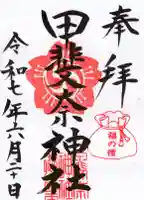 奉拝
甲斐奈神社
福の種
令和七年六月二十日